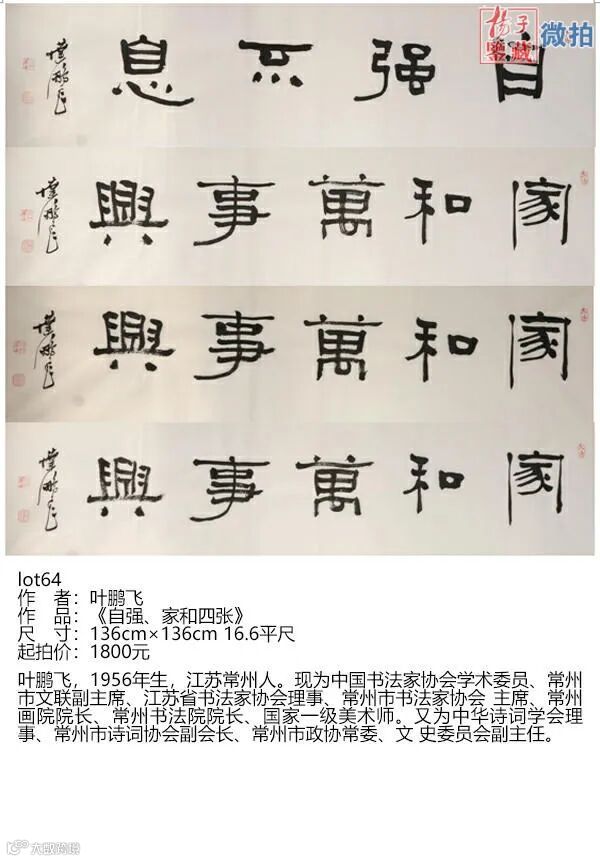 揚子
鑒藏
微拍
自强不息
家和萬事興
家和萬事興
家和萬事興
lot64
作 者：叶鹏飞
作 品：《自强、家和四张》
尺 寸：136cm×136cm 16.6平尺
起拍价：1800元
叶鹏飞，1956年生，江苏常州人。现为中国书法家协会学术委员、常州
市文联副主席、江苏省书法家协会理事、常州市书法家协会 主席、常州
画院院长、常州书法院院长、国家一级美术师。又为中华诗词学会理
事、常州市诗词协会副会长、常州市政协常委、文 史委员会副主任。